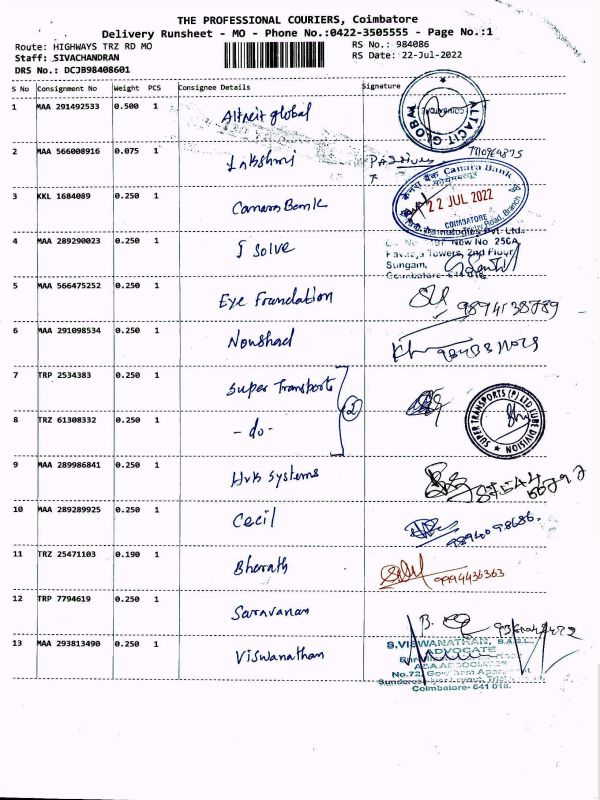 THE PROFESSIONAL COURIERS, Coimbatore
Delivery Runsheet - MO - Phone No.:0422-3505555 - Page No.:1
Route: HIGHWAYS TRZ RD MO RS No.: 984086
Staff: SIVACHANDRAN RS Date: 22-Jul-2022
DRS No.: DCJB98408601
S No Consignment No Weight PCS Consignee Details Signature
1 MAA 291492533 0.500 1 Altacit global
ALTACIT-GLOBAL
2 MAA 566008916 0.075 1 Lakshmi
3 KKL 1684089 0.250 1 Canara Bank
केनरा बैंक Canara Bank
22 JUL 2022
COIMBATORE
Road, Branch
4 MAA 289290023 0.250 1 I Solve
Pvt. Ltd.
New No 256A
Towers, 2nd Floor
Sungam,
Coimbatore - 641 018
5 MAA 566475252 0.250 1 Eye Foundation
6 MAA 291098534 0.250 1 Noushad
7 TRP 2534383 0.250 1 Super Transports
8 TRZ 61308332 0.250 1 - do -
(2)
SUPER TRANSPORTS (P) LTD TUBE DIVISION
9 MAA 289986841 0.250 1 Hvk Systems
10 MAA 289289925 0.250 1 Cecil
9894098686.
11 TRZ 25471103 0.190 1 Bharath
9994436363
12 TRP 7794619 0.250 1 Saravanan
13 MAA 293813490 0.250 1 Viswanathan
S.VISWANATHAN, B.A.B.L.,
ADVOCATE
ASA ASSOCIATES
No.72,
Coimbatore- 641 018.